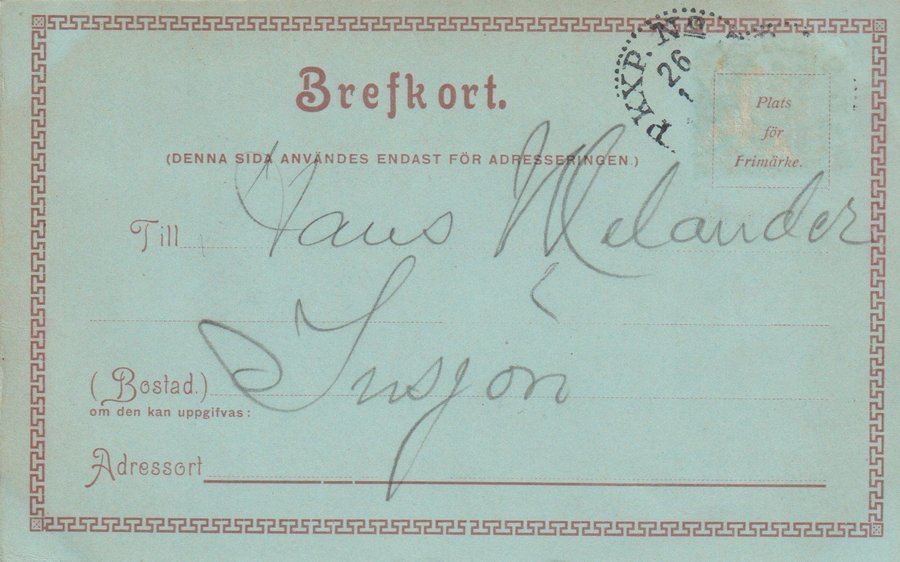 Brefkort.
PKXP. No
26
1
Plats
för
Frimärke.
(DENNA SIDA ANVÄNDES ENDAST FÖR ADRESSERINGEN.)
Till Hans Melander
Insjön
(Bostad.)
om den kan uppgifvas:
Adressort